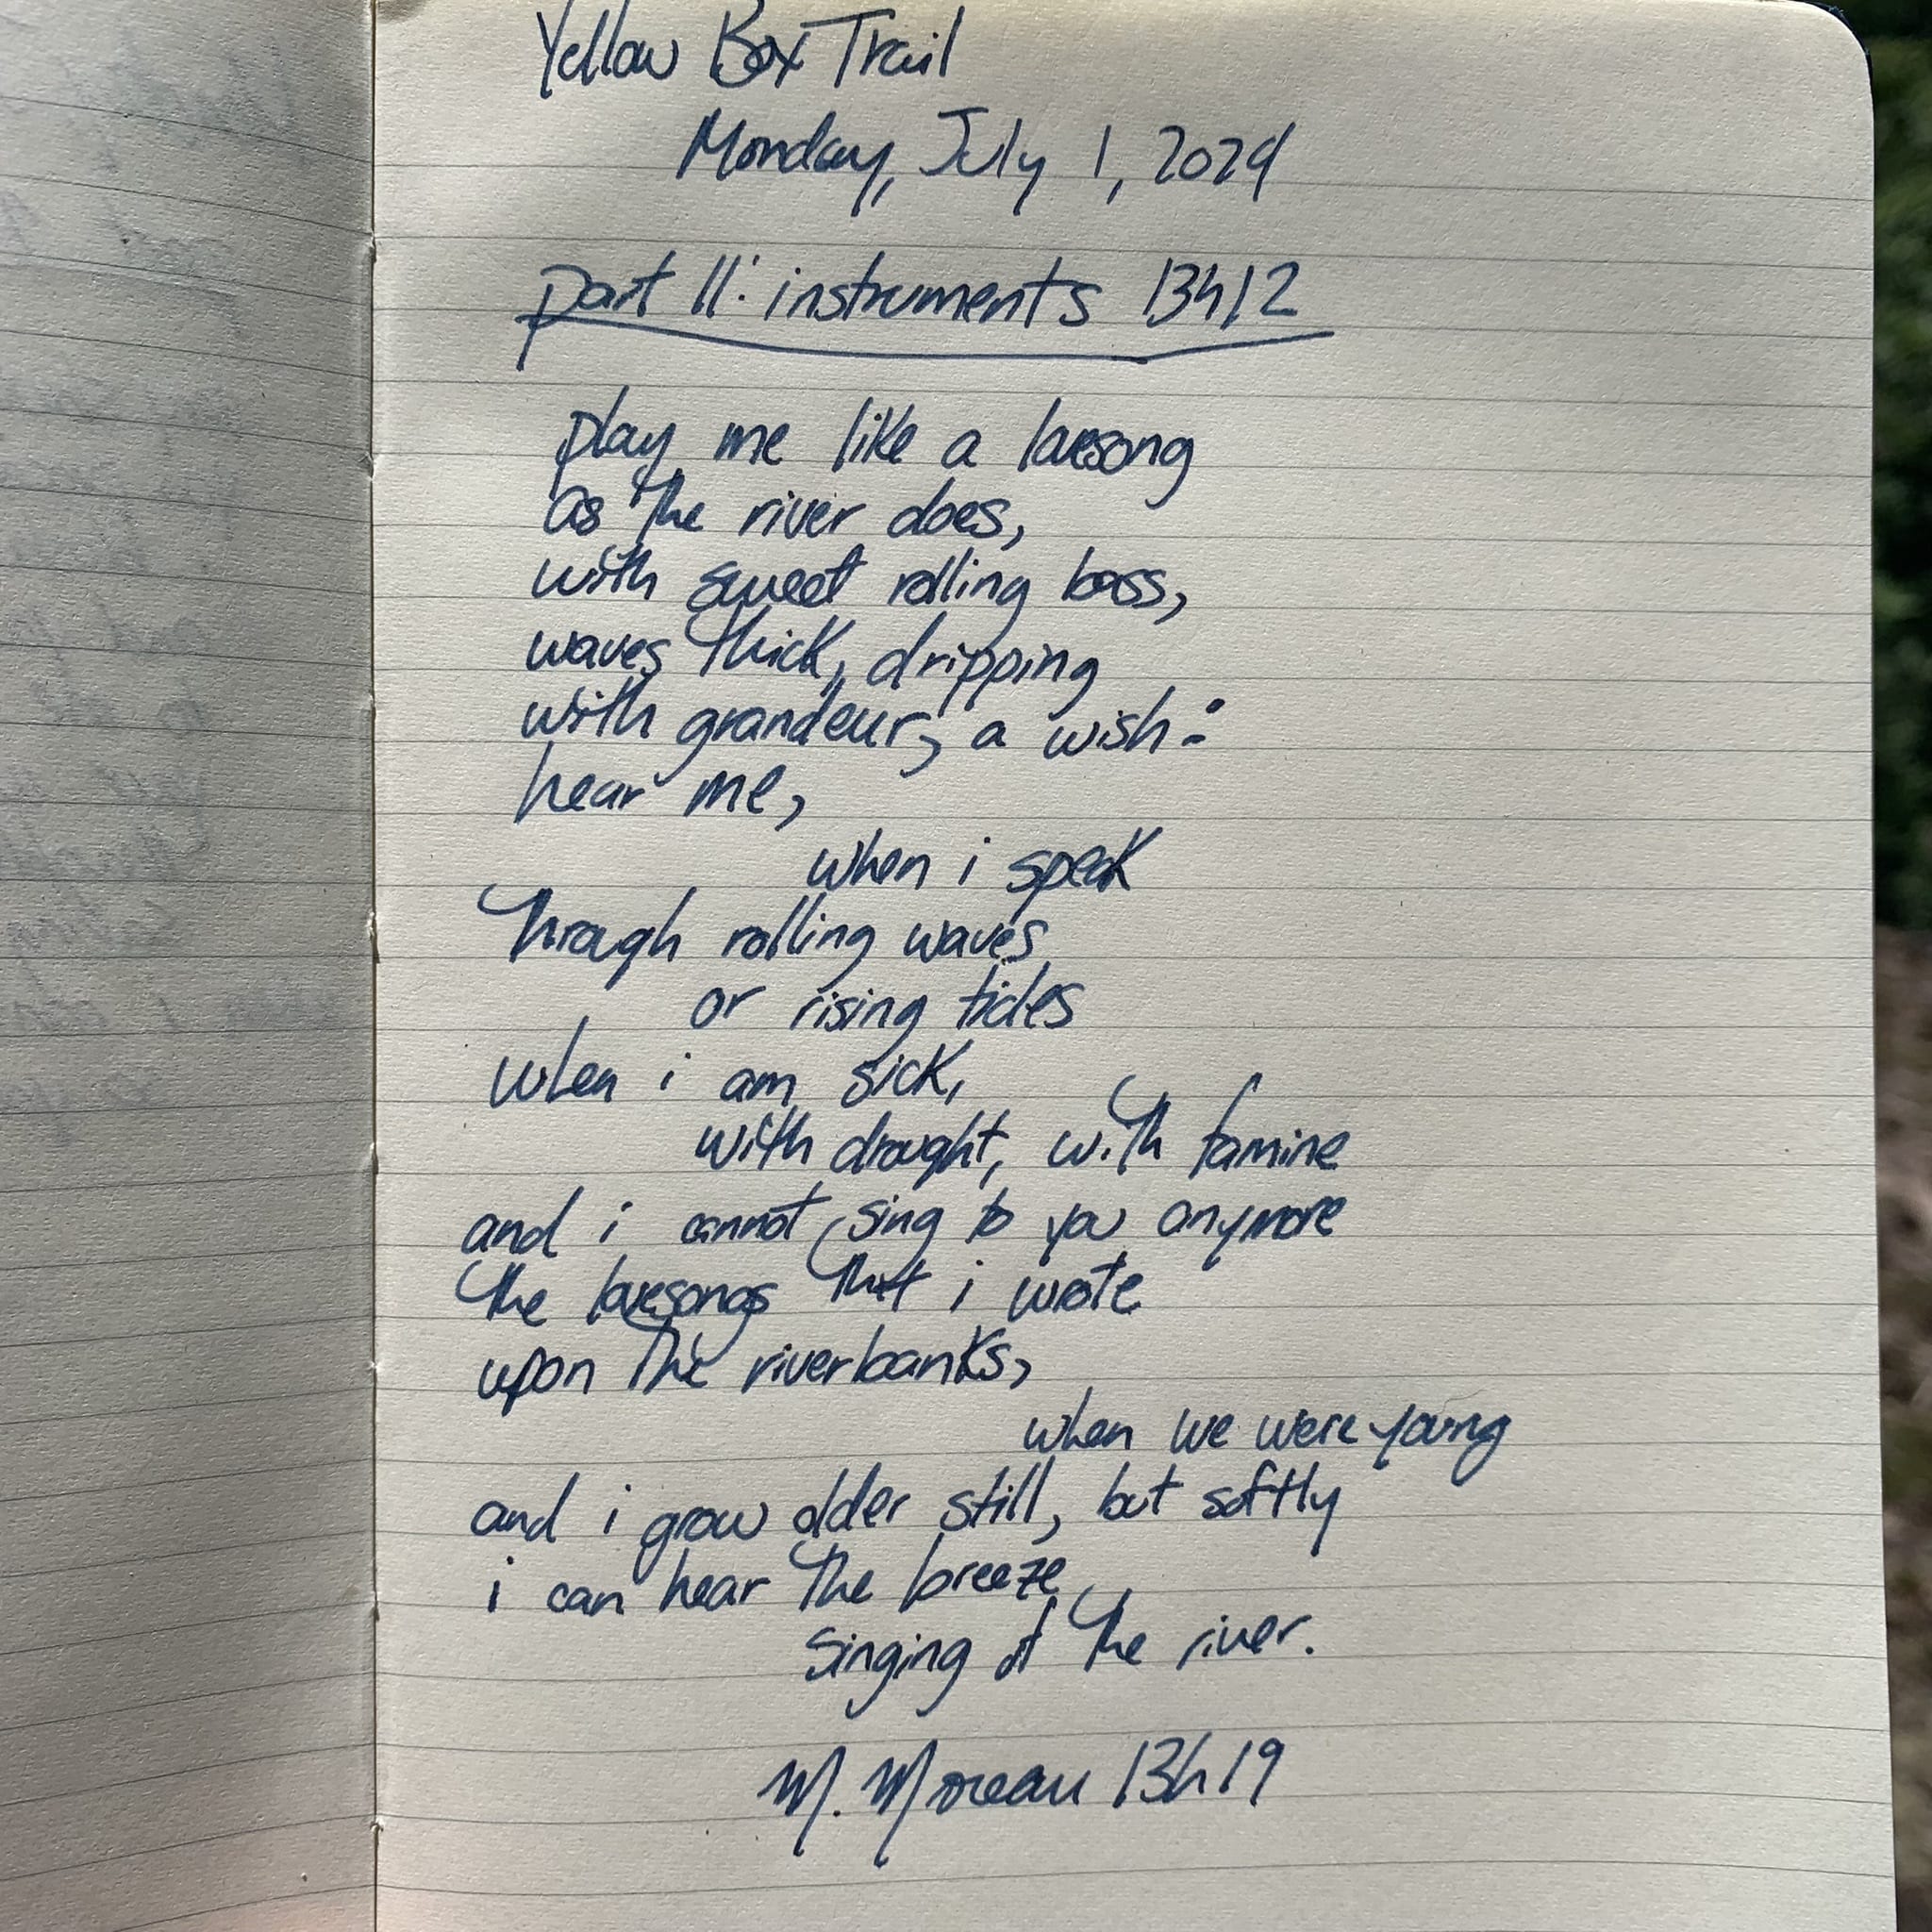 Yellow Box Trail
Monday, July 1, 2024
part II: instruments 13h12
play me like a lovesong
as the river does,
with sweet rolling bass,
waves thick, dripping
with grandeur, a wish:
hear me,
when i speak
through rolling waves
or rising tides
when i am sick,
with drought, with famine
and i cannot sing to you anymore
the lovesongs that i wrote
upon the riverbanks,
when we were young
and i grow older still, but softly
i can hear the breeze
singing of the river.
M. Moreau 13h19